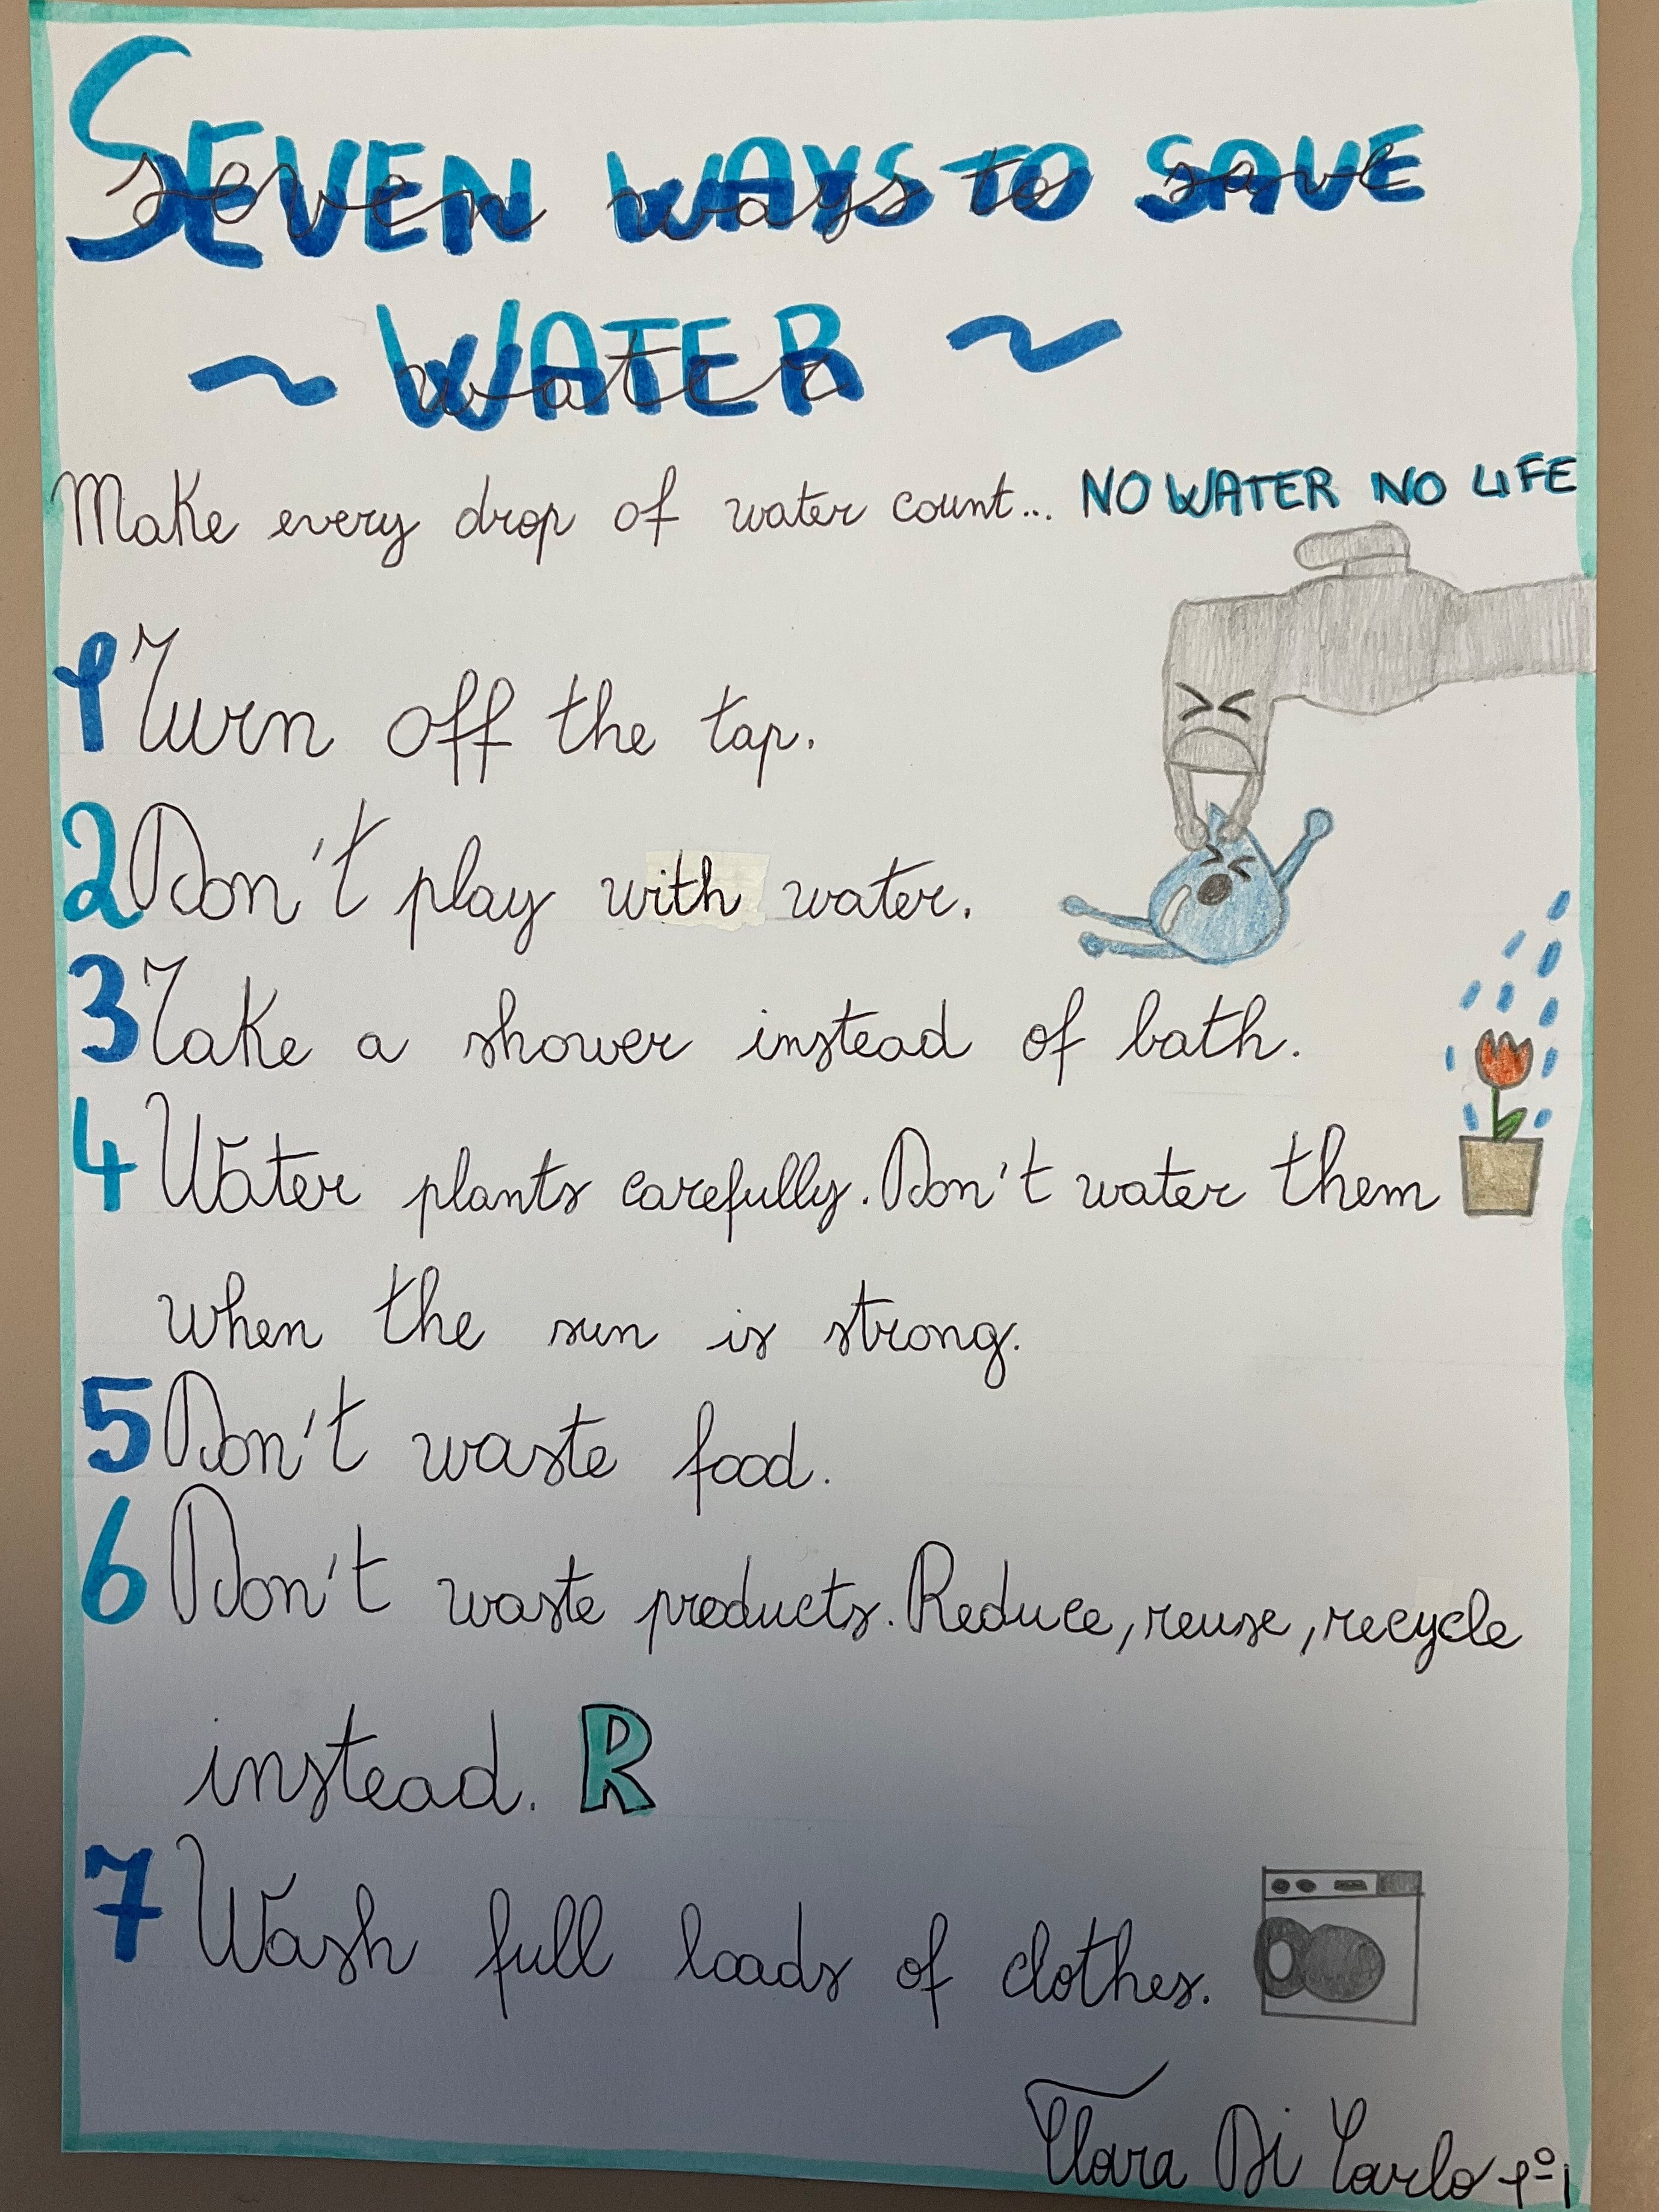 SEVEN WAYS TO SAVE
seven ways to save
~ WATER ~
water
Make every drop of water count... NO WATER NO LIFE
1 Turn off the tap.
2 Don't play with water.
3 Take a shower instead of bath.
4 Water plants carefully. Don't water them
when the sun is strong.
5 Don't waste food.
6 Don't waste products. Reduce, reuse, recycle
instead. R
7 Wash full loads of clothes.
Clara Di Carlo 1º